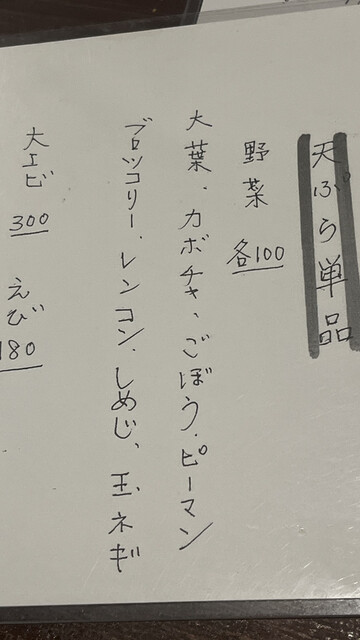 天ぷら単品
野菜 各100
大葉、カボチャ、ごぼう、ピーマン
ブロッコリー、レンコン、しめじ、玉ネギ
大エビ 300 えび 180